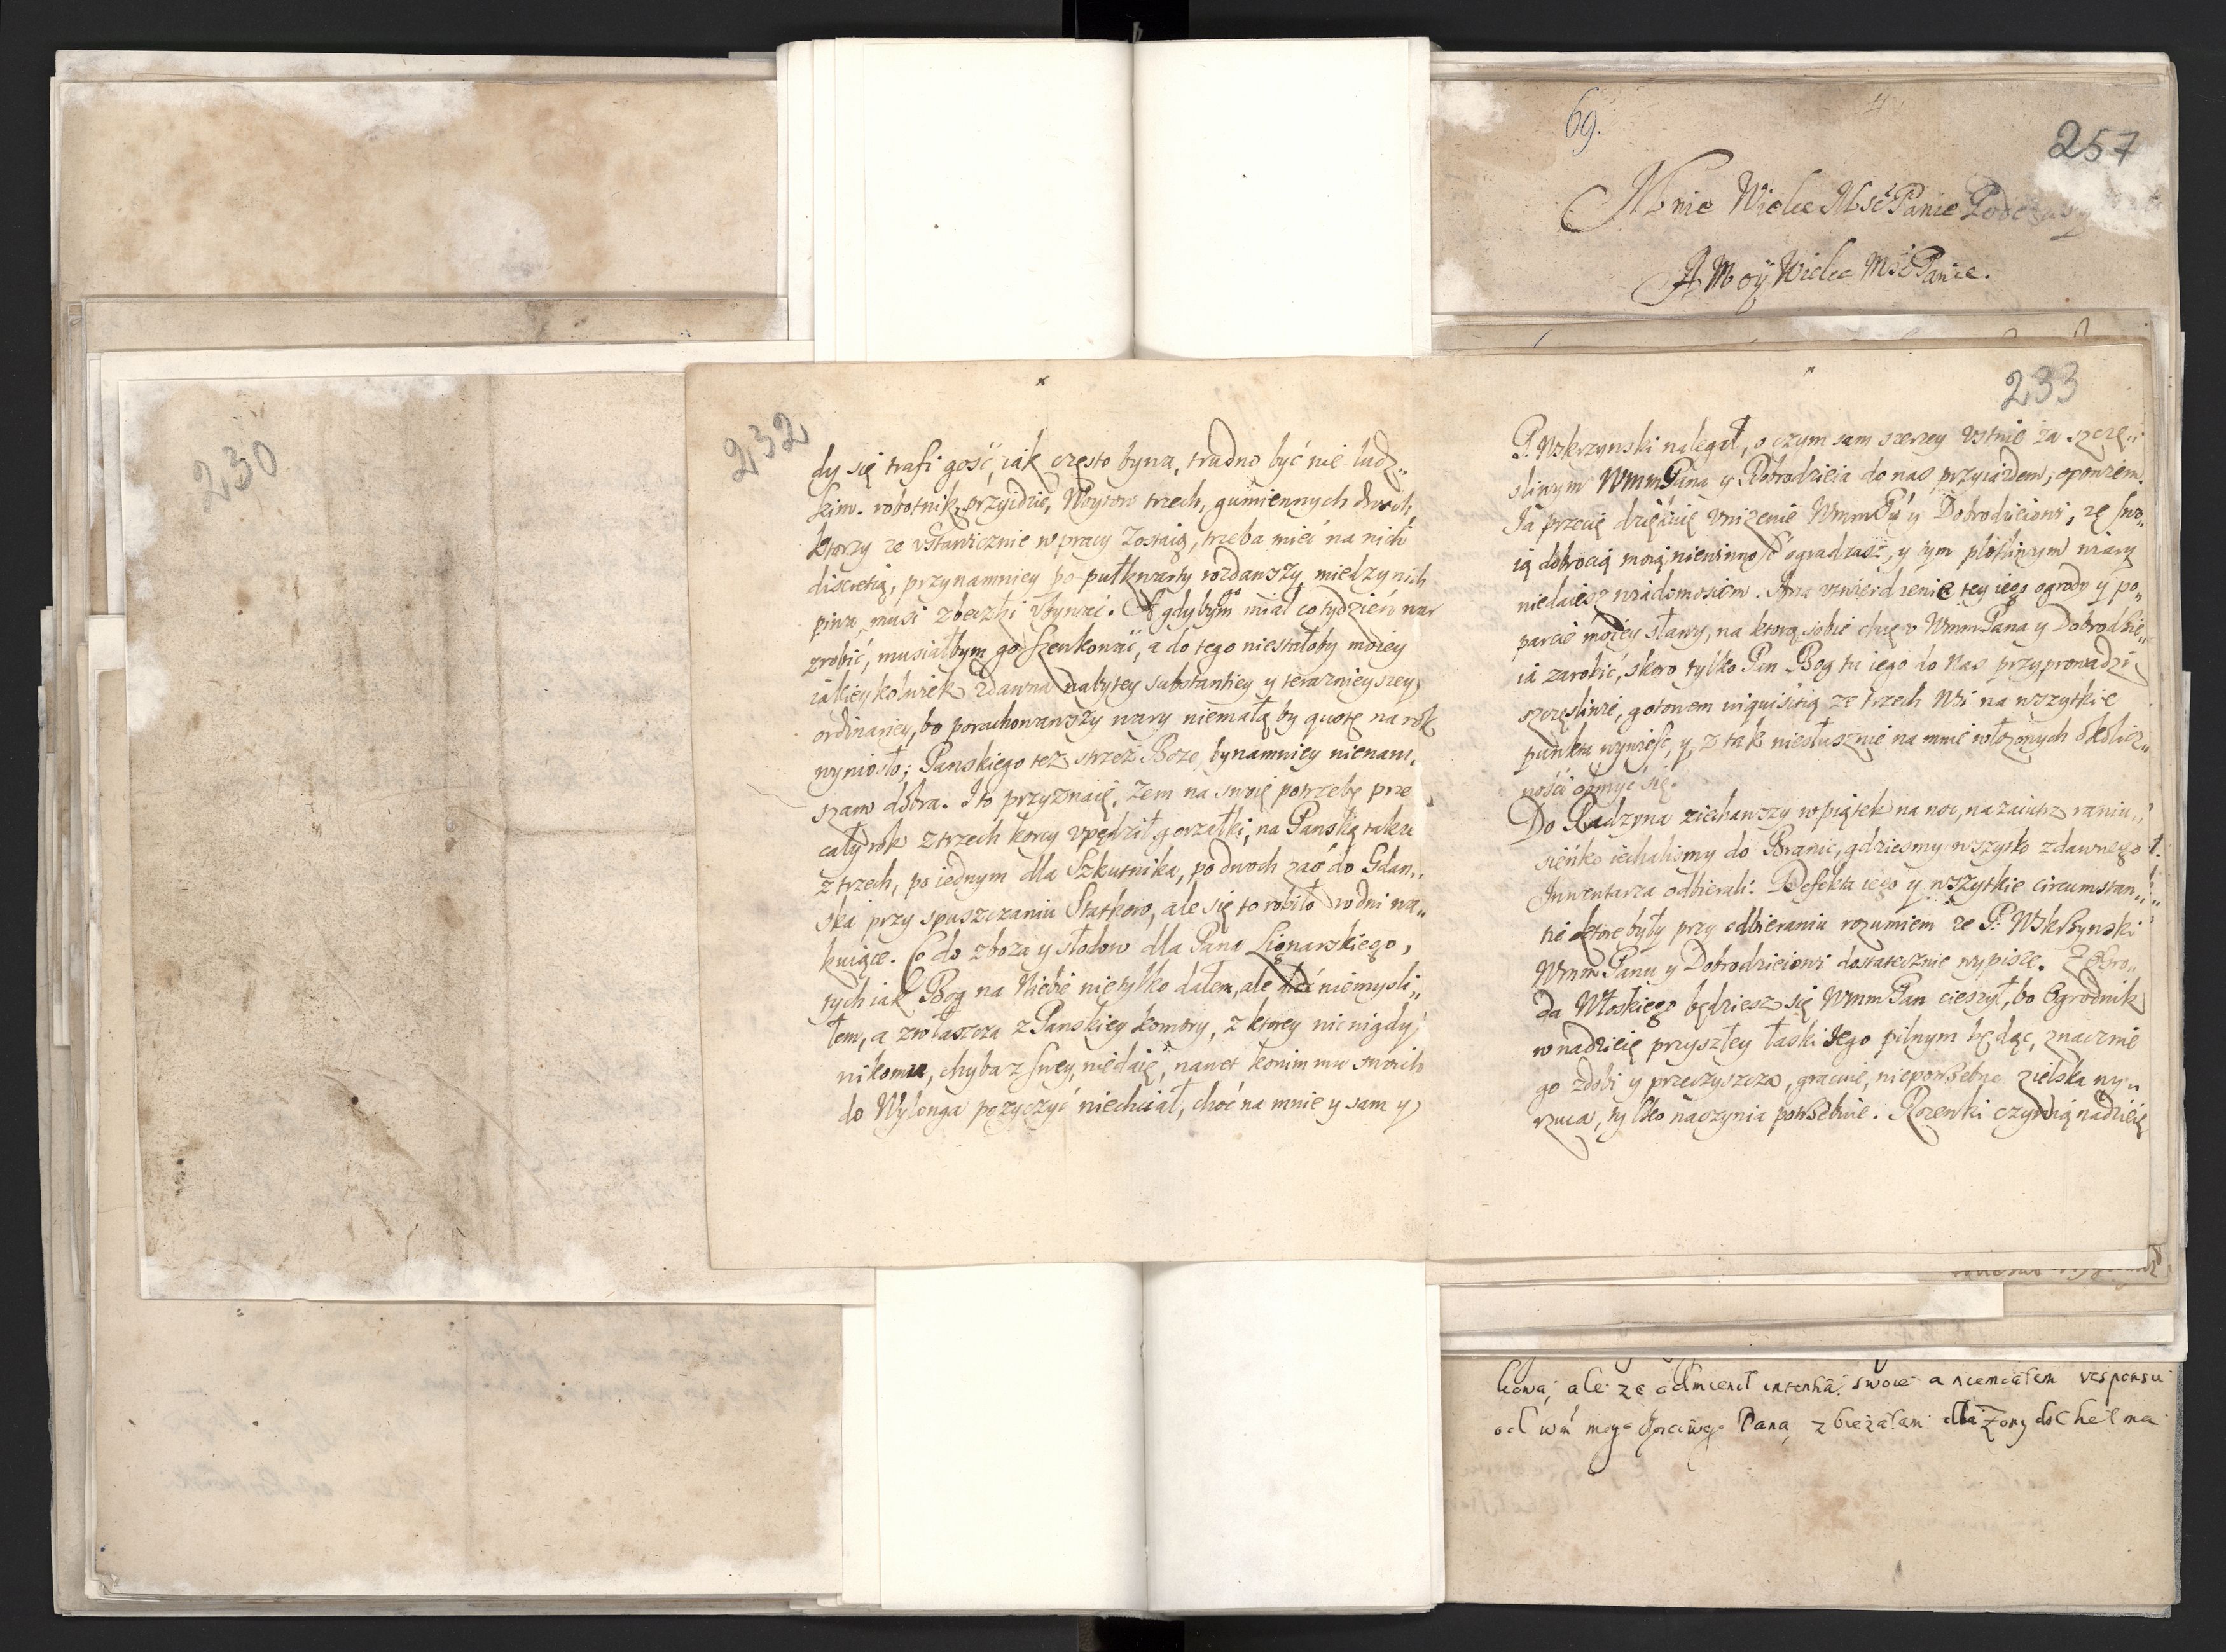 69.
257
Mnie Wielce Mści Panie Podczaszy
A Moÿ Wielce Mści Panie.
230
232
dy się trafi gość, iak często bywa, trudno być nie ludz„
kim. robotnik przyidzie, Woytow trzech, gumiennych dwoch,
ktorzy ze vstawicznie w pracy zostaią, trzeba mieć na nich
discretią, przynamniey po pułkwarty rozdawszy między nich
piwa, musi z beczki vbywać. A gdybym go miał co tydzień war
zrobić, musiałbym go szenkować, a do tego niestałoby moiey
iakieykolwiek zdawna nabytey substantiey y teraznieyszey
ordinariey, bo porachowawszy wary niemałą by quotę na rok
wyniosło; Panskiego tez strzeż Boze, bynamniey nienaru„
szam dobra. I to przyznaię, żem na swoię potrzebę prze
cały rok z trzech korcy vpędził gorzałki, na Panską takze
z trzech, po iednym dla Szkutnika, po dwoch zaś do Gdan„
ska przy spuszczaniu Statkow, ale się to robiło w dni wa„
kuiące. Co do zboza y słodow dla Pana Lignarskiego,
tych iak Bog na Niebie nietylko dałem, ale ani niemysli„
łem, a zwłaszcza z Panskiey komory, z ktorey nic nigdy
nikomu, chyba z swey, niedaię, nawet konim mu swoich
do Wylonga pozyczyć niechciał, choć na mnie y sam y
233
P. Wskrzynski nalegał, o czym sam szerzey vstnie za szczę„
sliwym WmmPana y Dobrodzieia do nas przyiazdem, opowiem.
Ia przecię dziękuię vnizenie WmmPu y Dobrodzieiowi, ze swo„
ią dobrocią moią niewinność ogradzasz, y tym płotliwym wiary
niedaiesz wiadomosciom. Ia na vtwierdzenie tey iego ogrody y po„
parcie moiey sławy, na ktorą sobie chcę v WmmPana y Dobrodzie„
ia zarobić, skoro tylko Pan Bog tu iego do nas przyprowadzi
szczęsliwie, gotowem inquisitią ze trzech Wsi na wszytkie
punkta wywieść, y z tak niesłusznie na mnie włozonych okolicz„
ności obmyć się.
Do Radzyna ziechawszy w piątek na noc, na zaiutrz raniu„
sieńko iechalismy do Branic, gdziesmy wszytko z dawnego
Inwentarza odbierali. Defekta iego y wszytkie circumstan„
tie ktore były przy odbieraniu rozumiem ze P. Wskrzynski
WmmPanu y Dobrodzieiowi dostatecznie wypisze. Z Ogro„
da Włoskiego będziesz się WmmPan cieszył, bo Ogrodnik
w nadzieię przyszłey łaski Iego pilnym będąc, znacznie
go zdobi y przeczyszcza, gracuie, niepotrzebne zielska wy„
rzuca, tylko naczynia potrzebuie. Rozenki czynią nadzieię
licną, ale ze odmienił intentią swoie a niemiałem responsu
od wm mego Pana, zbieżałem dla Zony do Chełma